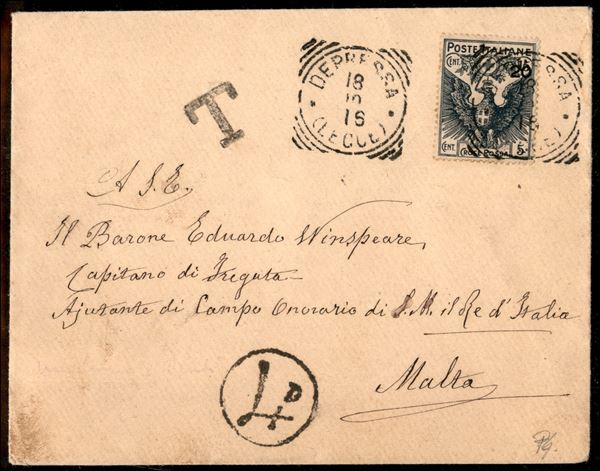 T
DEPRESSA
18
16
(LECCE)
POSTE ITALIANE
CENT.
20
CENT.
5
A S. E.
Il Barone Eduardo Winspeare,
Capitano di Fregata
Ajutante di Campo Onorario di S. M. il Re d'Italia
Malta
4D